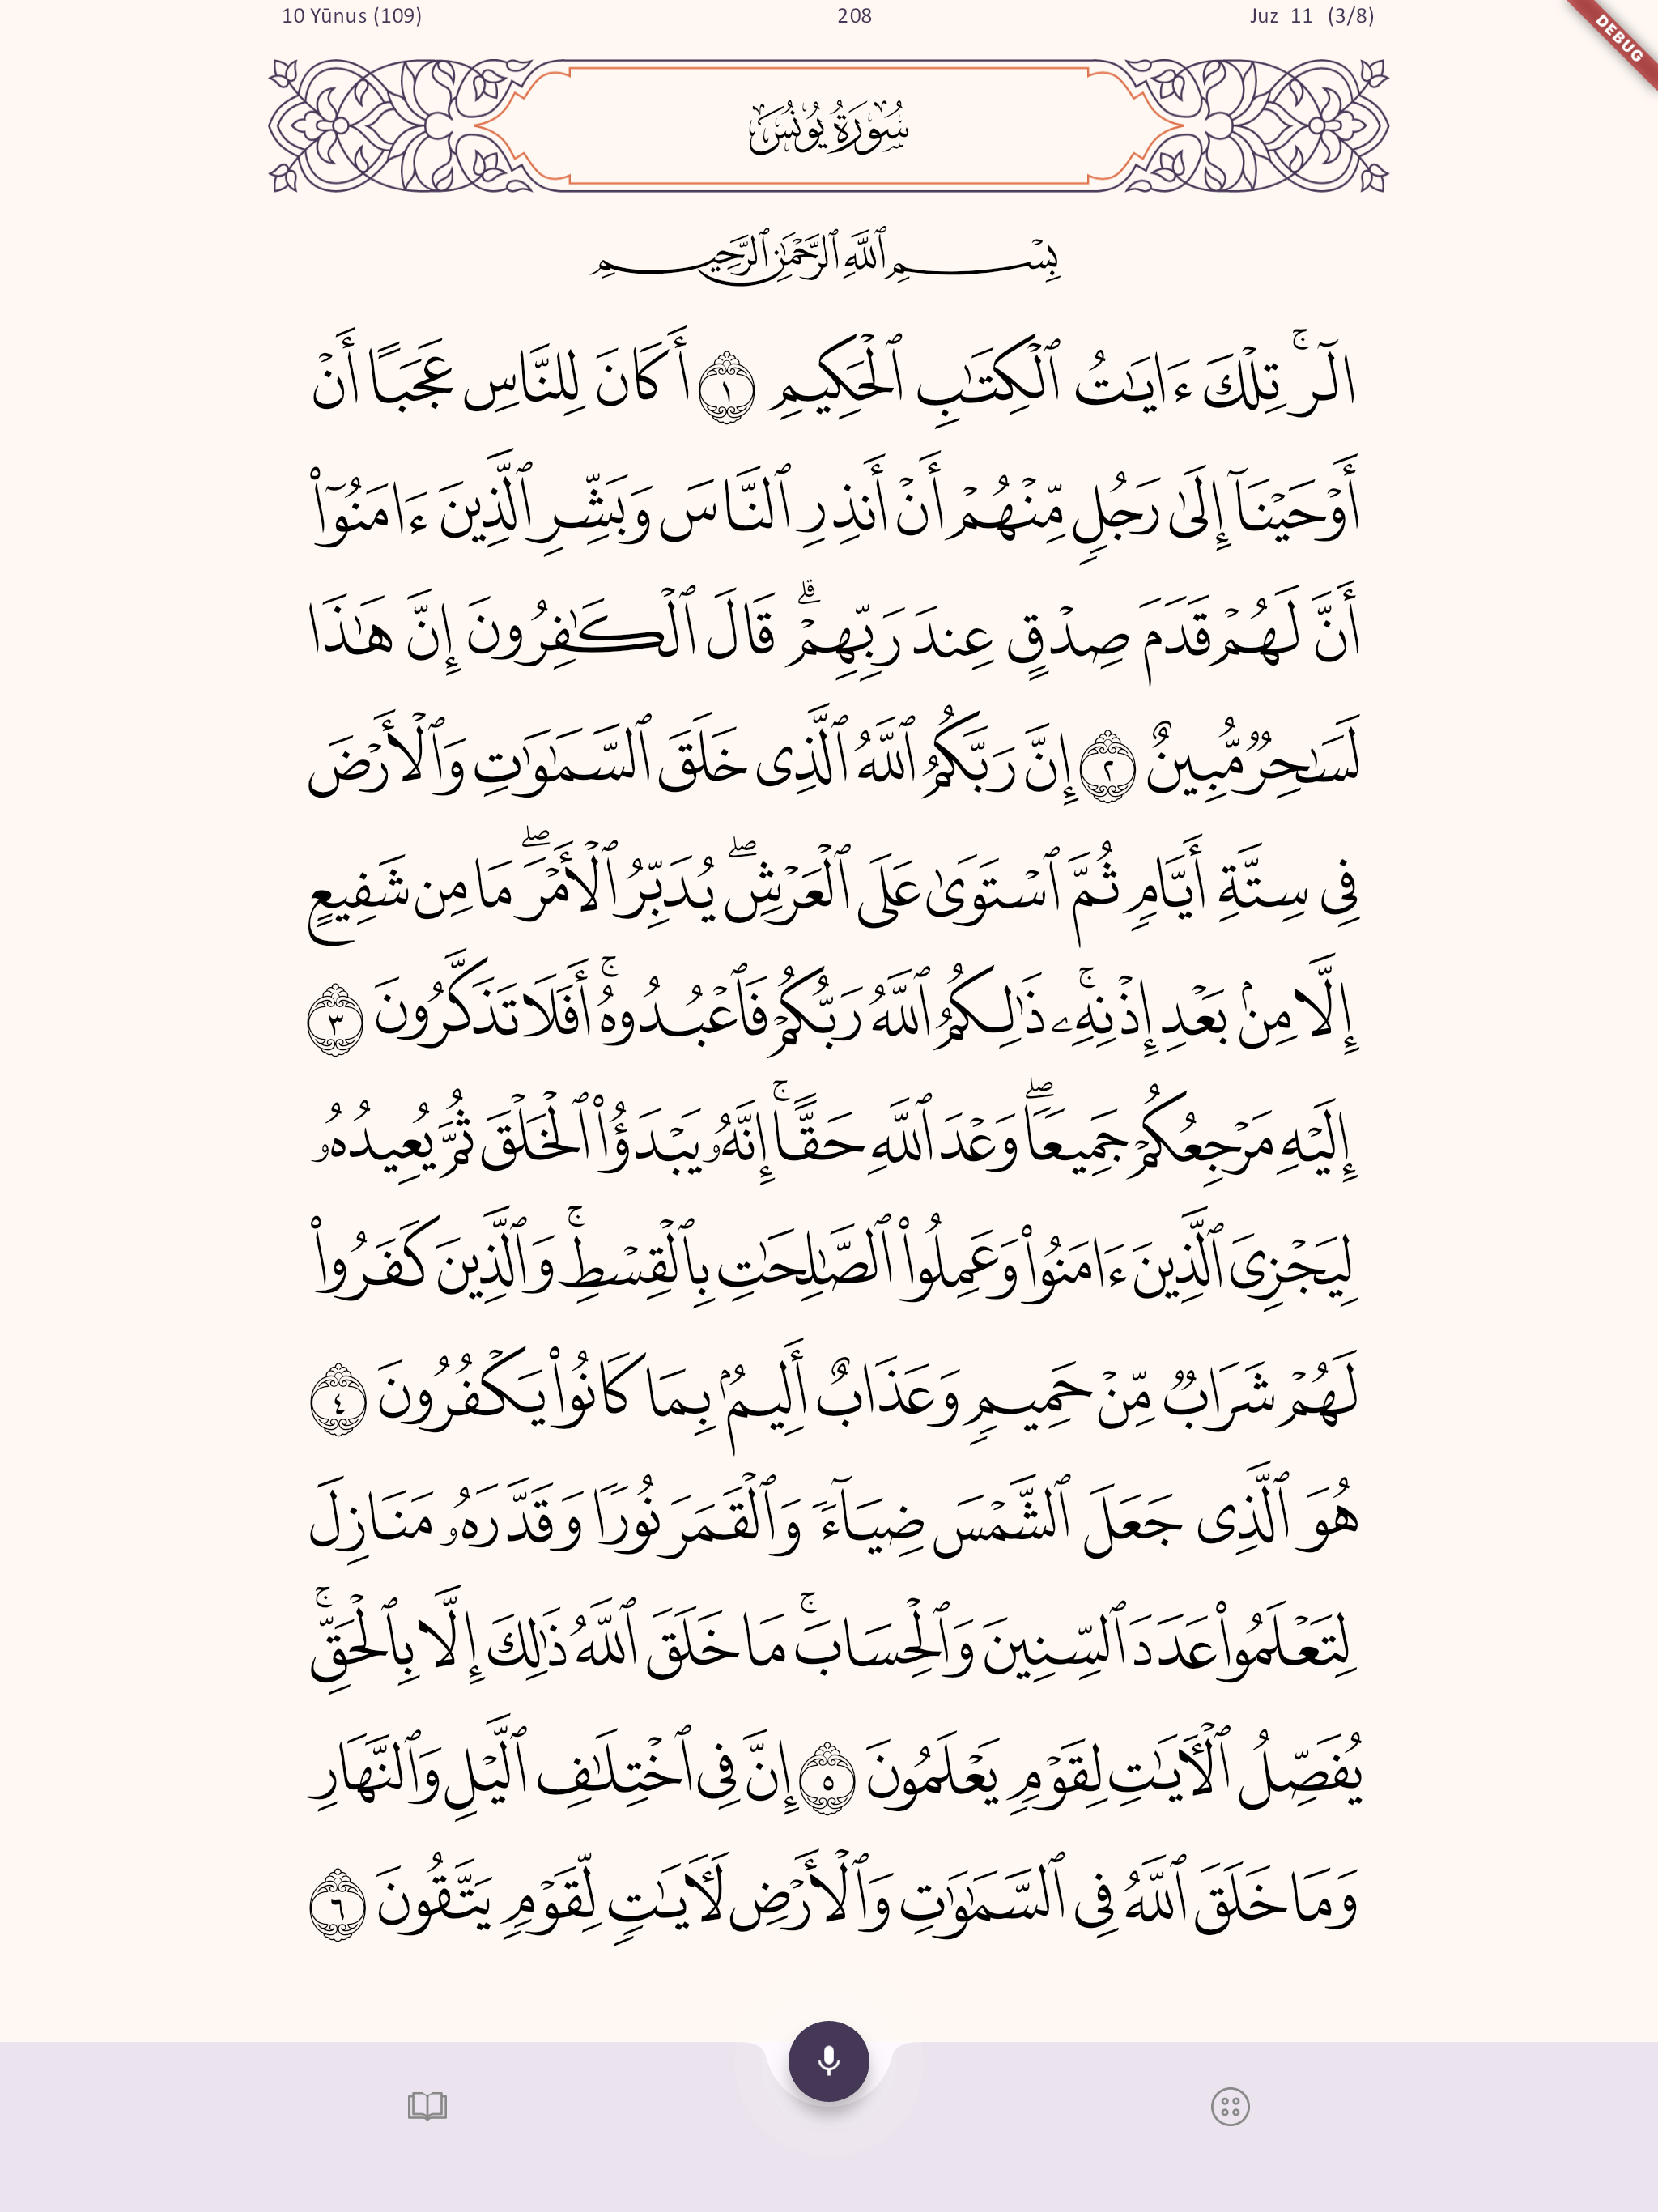 10 Yūnus (109) 208 Juz 11 (3/8)
DEBUG
سُورَةُ يُونُسَ
بِسْمِ ٱللَّهِ ٱلرَّحْمَٰنِ ٱلرَّحِيمِ
الٓر ۚ تِلْكَ ءَايَٰتُ ٱلْكِتَٰبِ ٱلْحَكِيمِ ١ أَكَانَ لِلنَّاسِ عَجَبًا أَنْ
أَوْحَيْنَآ إِلَىٰ رَجُلٍ مِّنْهُمْ أَنْ أَنذِرِ ٱلنَّاسَ وَبَشِّرِ ٱلَّذِينَ ءَامَنُوٓا۟
أَنَّ لَهُمْ قَدَمَ صِدْقٍ عِندَ رَبِّهِمْ ۗ قَالَ ٱلْكَٰفِرُونَ إِنَّ هَٰذَا
لَسَٰحِرٌ مُّبِينٌ ٢ إِنَّ رَبَّكُمُ ٱللَّهُ ٱلَّذِى خَلَقَ ٱلسَّمَٰوَٰتِ وَٱلْأَرْضَ
فِى سِتَّةِ أَيَّامٍ ثُمَّ ٱسْتَوَىٰ عَلَى ٱلْعَرْشِ ۖ يُدَبِّرُ ٱلْأَمْرَ ۖ مَا مِن شَفِيعٍ
إِلَّا مِنۢ بَعْدِ إِذْنِهِۦ ۚ ذَٰلِكُمُ ٱللَّهُ رَبُّكُمْ فَٱعْبُدُوهُ ۚ أَفَلَا تَذَكَّرُونَ ٣
إِلَيْهِ مَرْجِعُكُمْ جَمِيعًا ۖ وَعْدَ ٱللَّهِ حَقًّا ۚ إِنَّهُۥ يَبْدَؤُا۟ ٱلْخَلْقَ ثُمَّ يُعِيدُهُۥ
لِيَجْزِىَ ٱلَّذِينَ ءَامَنُوا۟ وَعَمِلُوا۟ ٱلصَّٰلِحَٰتِ بِٱلْقِسْطِ ۚ وَٱلَّذِينَ كَفَرُوا۟
لَهُمْ شَرَابٌ مِّنْ حَمِيمٍ وَعَذَابٌ أَلِيمٌۢ بِمَا كَانُوا۟ يَكْفُرُونَ ٤
هُوَ ٱلَّذِى جَعَلَ ٱلشَّمْسَ ضِيَآءً وَٱلْقَمَرَ نُورًا وَقَدَّرَهُۥ مَنَازِلَ
لِتَعْلَمُوا۟ عَدَدَ ٱلسِّنِينَ وَٱلْحِسَابَ ۚ مَا خَلَقَ ٱللَّهُ ذَٰلِكَ إِلَّا بِٱلْحَقِّ ۚ
يُفَصِّلُ ٱلْءَايَٰتِ لِقَوْمٍ يَعْلَمُونَ ٥ إِنَّ فِى ٱخْتِلَٰفِ ٱلَّيْلِ وَٱلنَّهَارِ
وَمَا خَلَقَ ٱللَّهُ فِى ٱلسَّمَٰوَٰتِ وَٱلْأَرْضِ لَءَايَٰتٍ لِّقَوْمٍ يَتَّقُونَ ٦